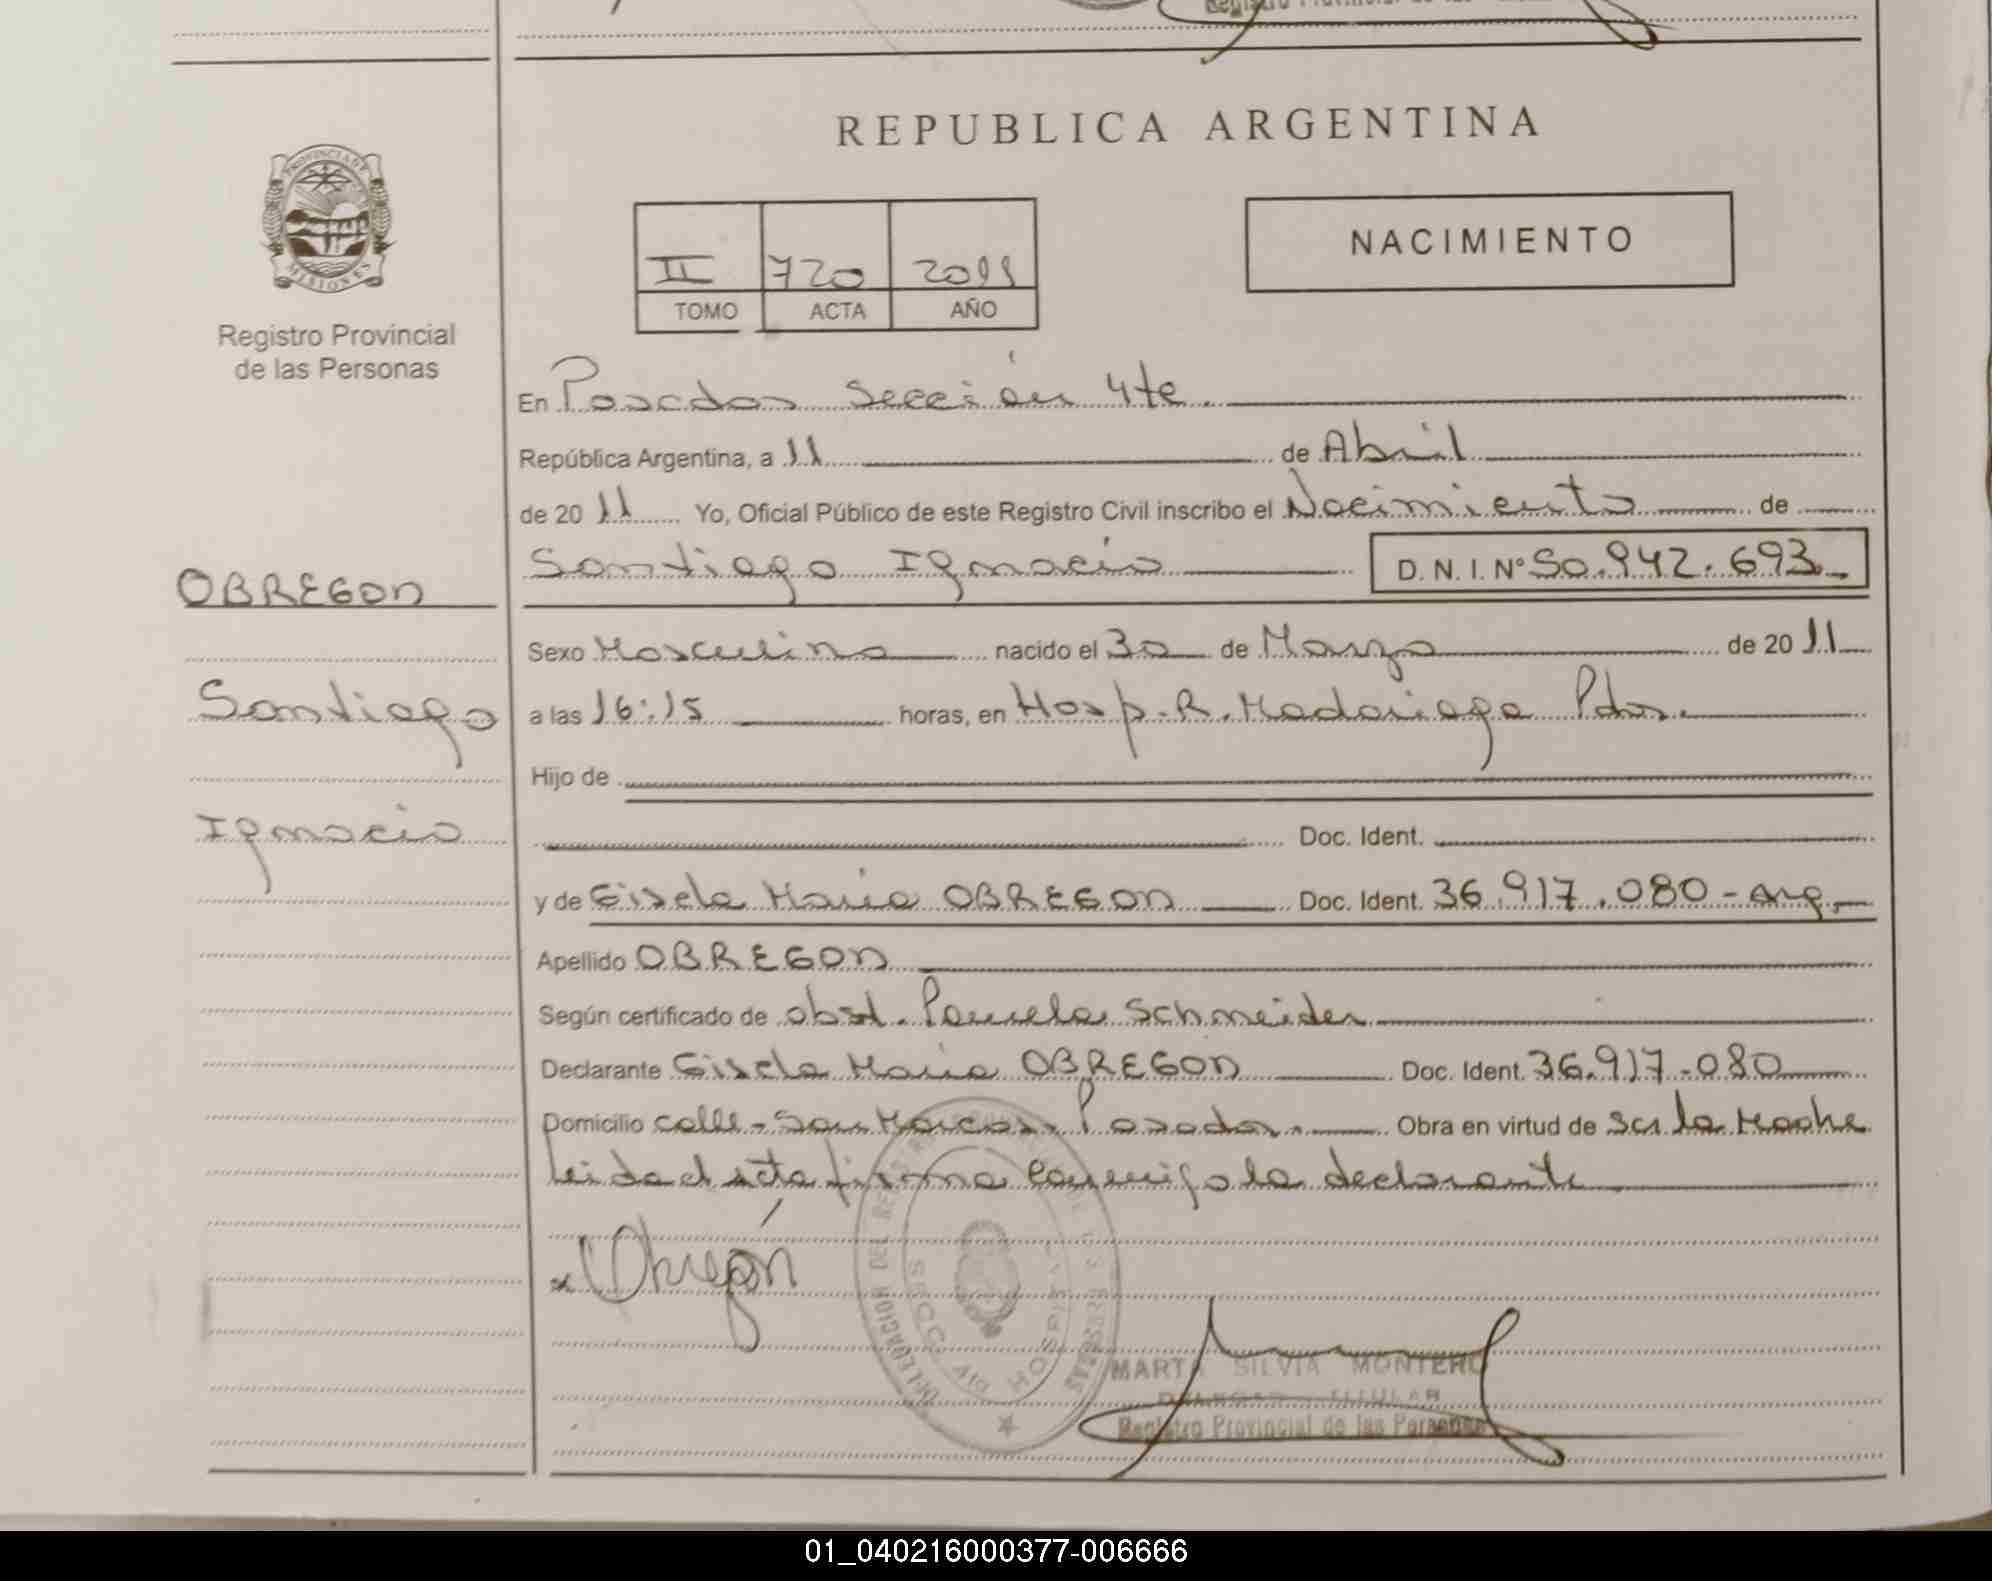 REPUBLICA ARGENTINA
PROVINCIA DE
MISIONES
Registro Provincial
de las Personas
II 720 2011
TOMO ACTA AÑO
NACIMIENTO
En Posadas Sección 4ta.
República Argentina, a 11 de Abril
de 20 11 Yo, Oficial Público de este Registro Civil inscribo el Nacimiento de
Santiago Ignacio D.N.I. Nº 50.942.693.
OBREGON
Santiago
Ignacio
Sexo Masculino nacido el 30 de Marzo de 20 11
a las 16:15 horas, en Hosp. R. Madariaga Pdas.
Hijo de
Doc. Ident.
y de Gisela María OBREGON Doc. Ident. 36.917.080-arg.
Apellido OBREGON
Según certificado de obst. Pamela Schneider
Declarante Gisela María OBREGON Doc. Ident. 36.917.080
Domicilio calle San Marcos. Posadas. Obra en virtud de ser la Madre
leida el acta firma conmigo la declarante
x Obregón
DELEGACION DEL REGISTRO
SECC. 4ta HOSPITAL
MARTA SILVIA MONTERO
Registro Provincial de las Personas
01_040216000377-006666